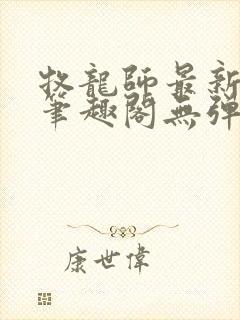 牧龍師最新
筆趣閣無彈
康世偉